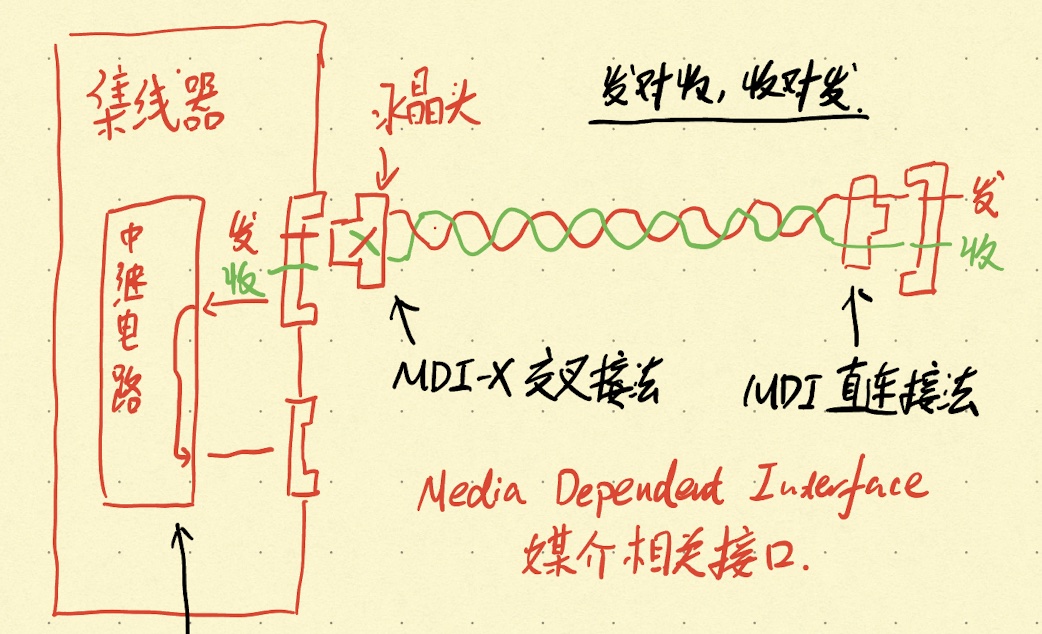 集线器
水晶头
发对收，收对发.
中继电路
发
收
X
发
收
MDI-X 交叉接法
MDI 直连接法
Media Dependent Interface
媒介相关接口.